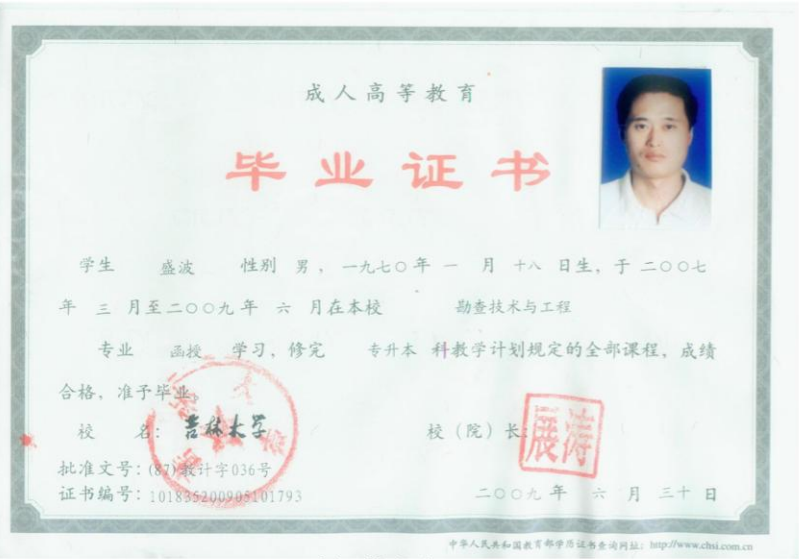 成人高等教育
毕业证书
学生 盛波 性别 男，一九七〇年 一 月 十八 日生，于二〇〇七
年 三 月至二〇〇九年 六 月在本校 勘查技术与工程
专业 函授 学习，修完 专升本 科教学计划规定的全部课程，成绩
合格，准予毕业。
校 名：吉林大学 校（院）长：
展涛
批准文号：(87)教计字036号
证书编号：101835200905101793 二〇〇九 年 六 月 三十 日
中华人民共和国教育部学历证书查询网址：http://www.chsi.com.cn